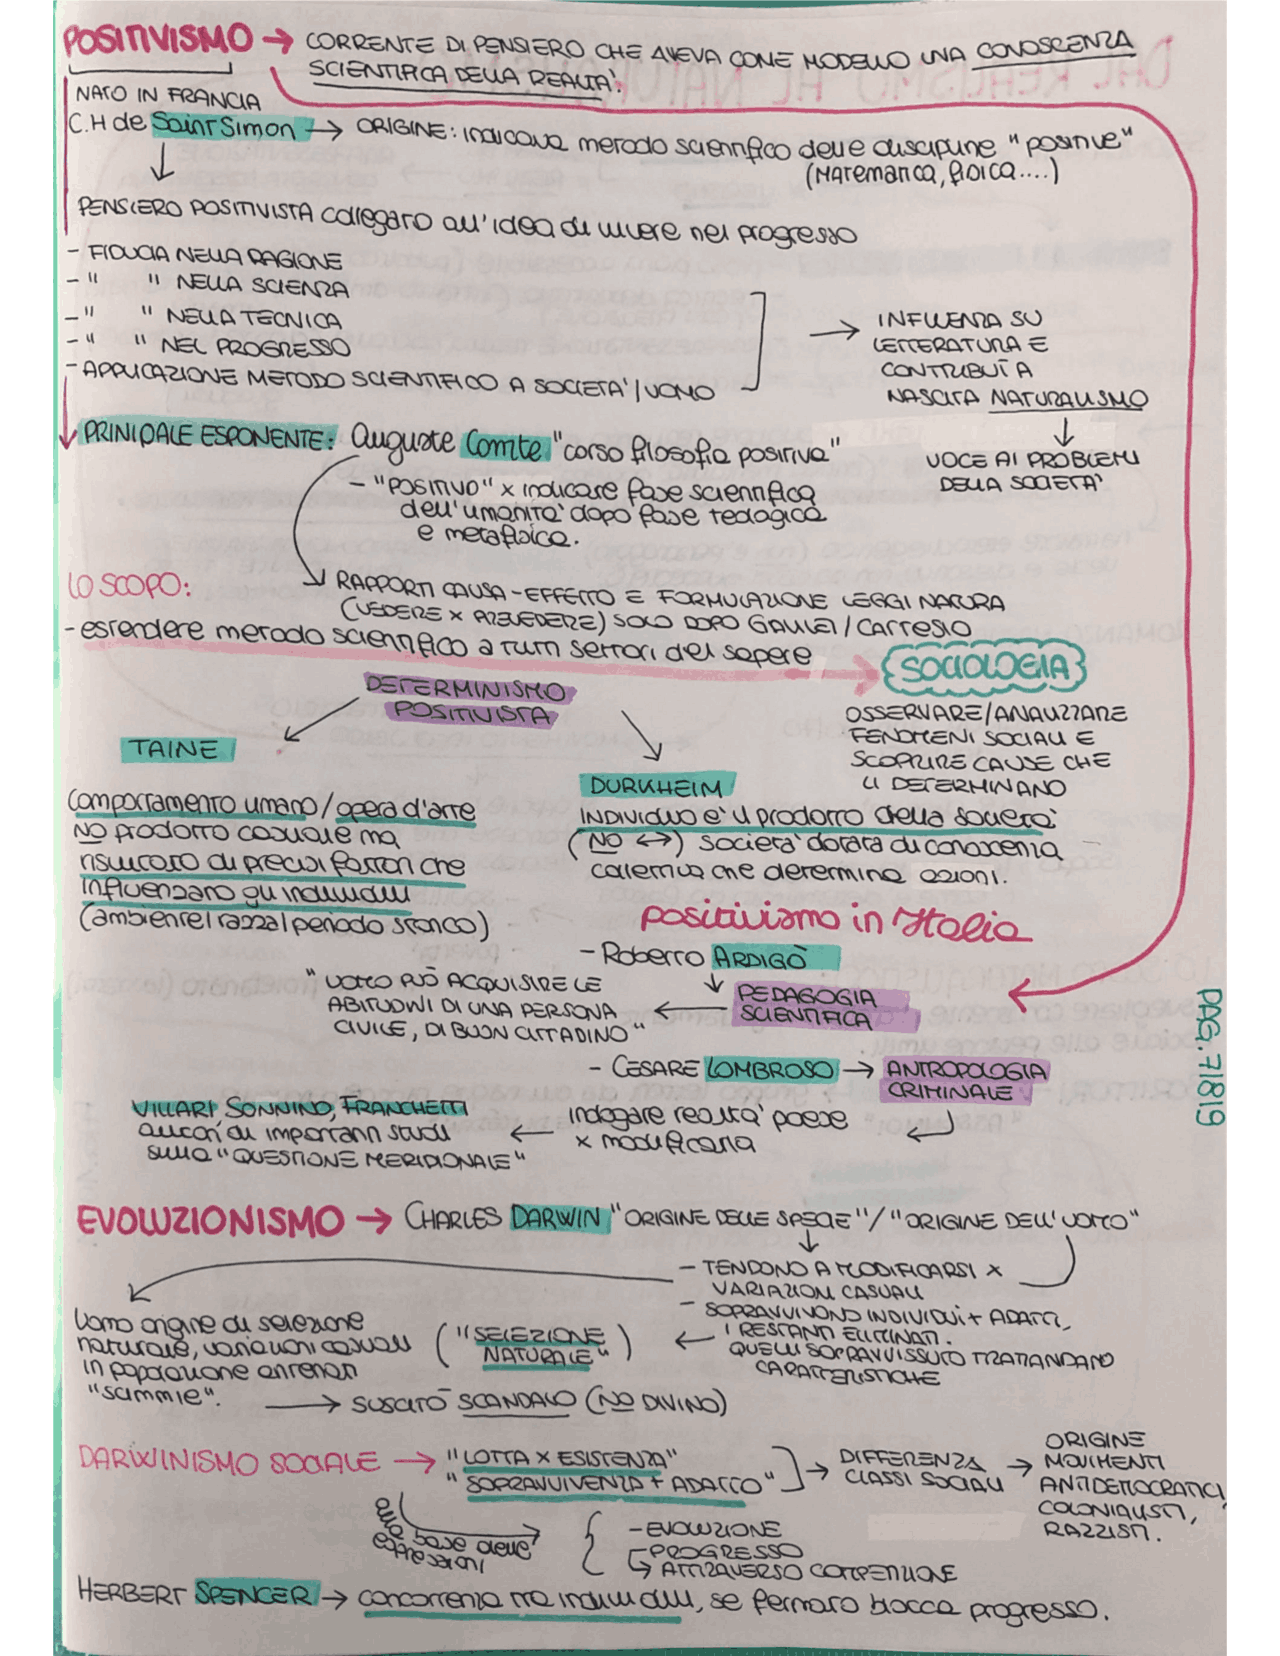 POSITIVISMO → CORRENTE DI PENSIERO CHE AVEVA COME MODELLO UNA CONOSCENZA
SCIENTIFICA DELLA REALTÀ.
NATO IN FRANCIA
C.H de Saint Simon → ORIGINE: indicava metodo scientifico delle discipline "positive"
(Matematica, fisica....)
PENSIERO POSITIVISTA collegato all'idea di vivere nel progresso
- FIDUCIA NELLA RAGIONE
- " " NELLA SCIENZA
- " " NELLA TECNICA
- " " NEL PROGRESSO
- APPLICAZIONE METODO SCIENTIFICO A SOCIETA'/UOMO
→ INFLUENZA SU
LETTERATURA E
CONTRIBUÌ A
NASCITA NATURALISMO
VOCE AI PROBLEMI
DELLA SOCIETA'
PRINIPALE ESPONENTE: Auguste Comte "corso filosofia positiva"
- "POSITIVO" x indicare fase scientifica
dell'umanità dopo fase teologica
e metafisica.
LO SCOPO:
RAPPORTI CAUSA-EFFETTO E FORMULAZIONE LEGGI NATURA
(VEDERE x PREVEDERE) SOLO DOPO GALILEI/CARTESIO
- estendere metodo scientifico a tutti settori del sapere → SOCIOLOGIA
OSSERVARE/ANALIZZARE
FENOMENI SOCIALI E
SCOPRIRE CAUSE CHE
LI DETERMINANO
DETERMINISMO
POSITIVISTA
TAINE
Comportamento umano/opera d'arte
NO prodotto casuale ma
risultato di precisi fattori che
influenzano gli individui
(ambiente/razza/periodo storico)
DURKHEIM
INDIVIDUO E' il prodotto della società
(NO ↔) società dotata di conoscenza
collettiva che determina azioni.
positivismo in Italia
- Roberto ARDIGÒ
PEDAGOGIA
SCIENTIFICA
"UOMO PUÒ ACQUISIRE LE
ABITUDINI DI UNA PERSONA
CIVILE, DI BUON CITTADINO"
- CESARE LOMBROSO → ANTROPOLOGIA
CRIMINALE
indagare realtà paese
x modificarla
VILLARI, SONNINO, FRANCHETTI
autori di importanti studi
sulla "QUESTIONE MERIDIONALE"
PAG. 7/8/9
EVOLUZIONISMO → CHARLES DARWIN "ORIGINE DELLE SPECIE"/"ORIGINE DELL'UOMO"
- TENDONO A MODIFICARSI x
VARIAZIONI CASUALI
- SOPRAVVIVONO INDIVIDUI + ADATTI,
I RESTANTI ELIMINATI.
QUELLI SOPRAVVISSUTO TRAMANDANO
CARATTERISTICHE
("SELEZIONE
NATURALE")
Uomo origine di selezione
naturale, variazioni casuali
in popolazione antenati
"scimmie".
→ SUSCITÒ SCANDALO (NO DIVINO)
DARWINISMO SOCIALE → "LOTTA x ESISTENZA"
"SOPRAVVIVENZA + ADATTO"
→ DIFFERENZA
CLASSI SOCIALI
→ ORIGINE
MOVIMENTI
ANTIDEMOCRATICI,
COLONIALISTI,
RAZZISTI.
alla base delle
espressioni
- EVOLUZIONE
- PROGRESSO
↳ ATTRAVERSO COMPETIZIONE
HERBERT SPENCER → concorrenza tra individui, se fermato blocca progresso.